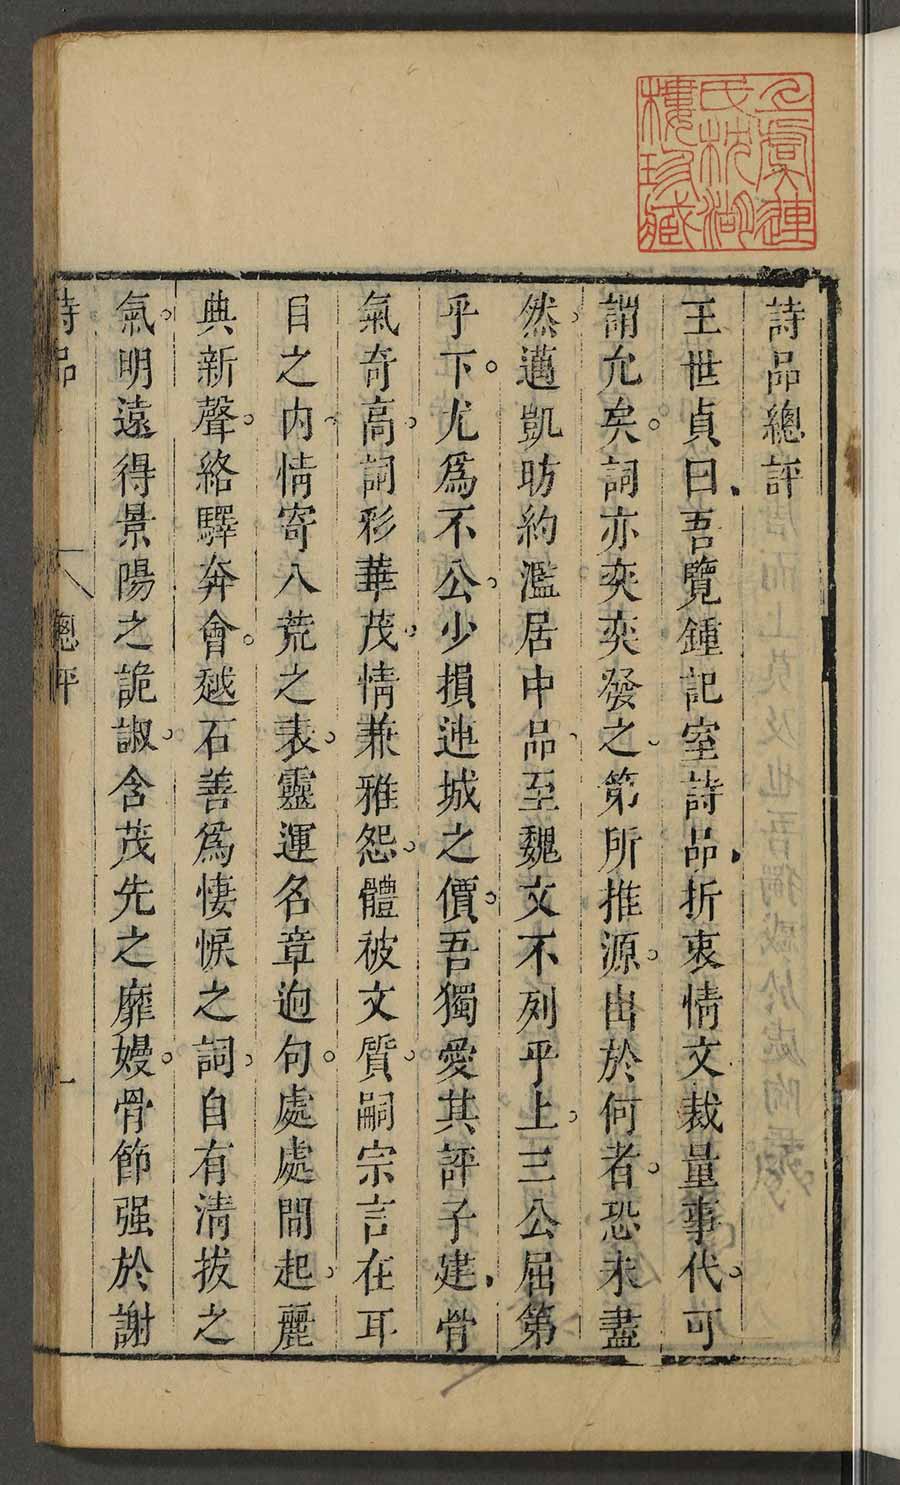 上虞連
氏枕湖
樓珍藏
詩品總評
王世貞曰吾覽鍾記室詩品折衷情文裁量事代可
謂允矣詞亦奕奕發之第所推源出於何者恐未盡
然邁凱昉約濫居中品至魏文不列乎上三公屈第
乎下尤爲不公少損連城之價吾獨愛其評子建骨
氣奇高詞彩華茂情兼雅怨體被文質嗣宗言在耳
目之内情寄八荒之表靈運名章迥句處處間起麗
典新聲絡驛奔會越石善爲悽悷之詞自有清拔之
氣明遠得景陽之詭諔含茂先之靡嫚骨節强於謝
詩品 總評 一